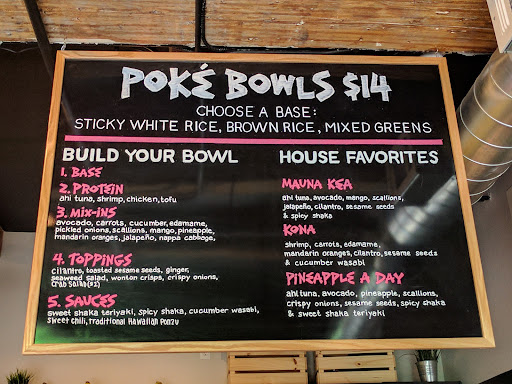 POKÉ BOWLS $14
CHOOSE A BASE:
STICKY WHITE RICE, BROWN RICE, MIXED GREENS
BUILD YOUR BOWL
1. BASE
2. PROTEIN
ahi tuna, shrimp, chicken, tofu
3. MIX-INS
avocado, carrots, cucumber, edamame,
pickled onions, scallions, mango, pineapple,
mandarin oranges, jalapeño, nappa cabbage,
4. TOPPINGS
cilantro, toasted sesame seeds, ginger,
seaweed salad, wonton crisps, crispy onions,
crab salad (+2)
5. SAUCES
sweet shaka teriyaki, spicy shaka, cucumber wasabi,
sweet chili, Traditional Hawaiian Ponzu
HOUSE FAVORITES
MAUNA KEA
ahi tuna, avocado, mango, scallions,
jalapeño, cilantro, sesame seeds
& spicy shaka
KONA
shrimp, carrots, edamame,
mandarin oranges, cilantro, sesame seeds
& cucumber wasabi
PINEAPPLE A DAY
ahi tuna, avocado, pineapple, scallions,
crispy onions, sesame seeds, spicy shaka
& sweet shaka teriyaki